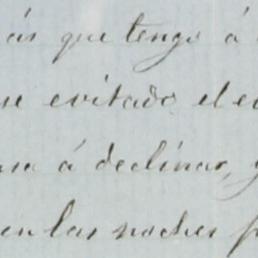 ás que tengo á
se evitado el e
a á declinar, y
en las noches p